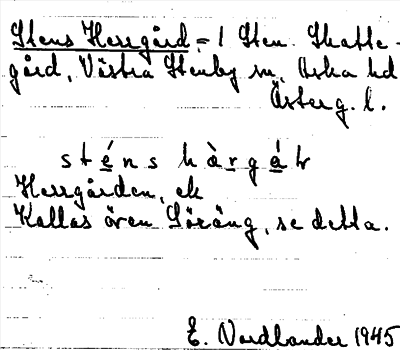 Stens Herrgård = 1 Sten. Skatte-
gård, Västra Stenby sn, Aska hd
Österg. l.
sténs hàrgát
Herrgården, ek
Kallas även Söräng, se detta.
E. Nordlander 1945